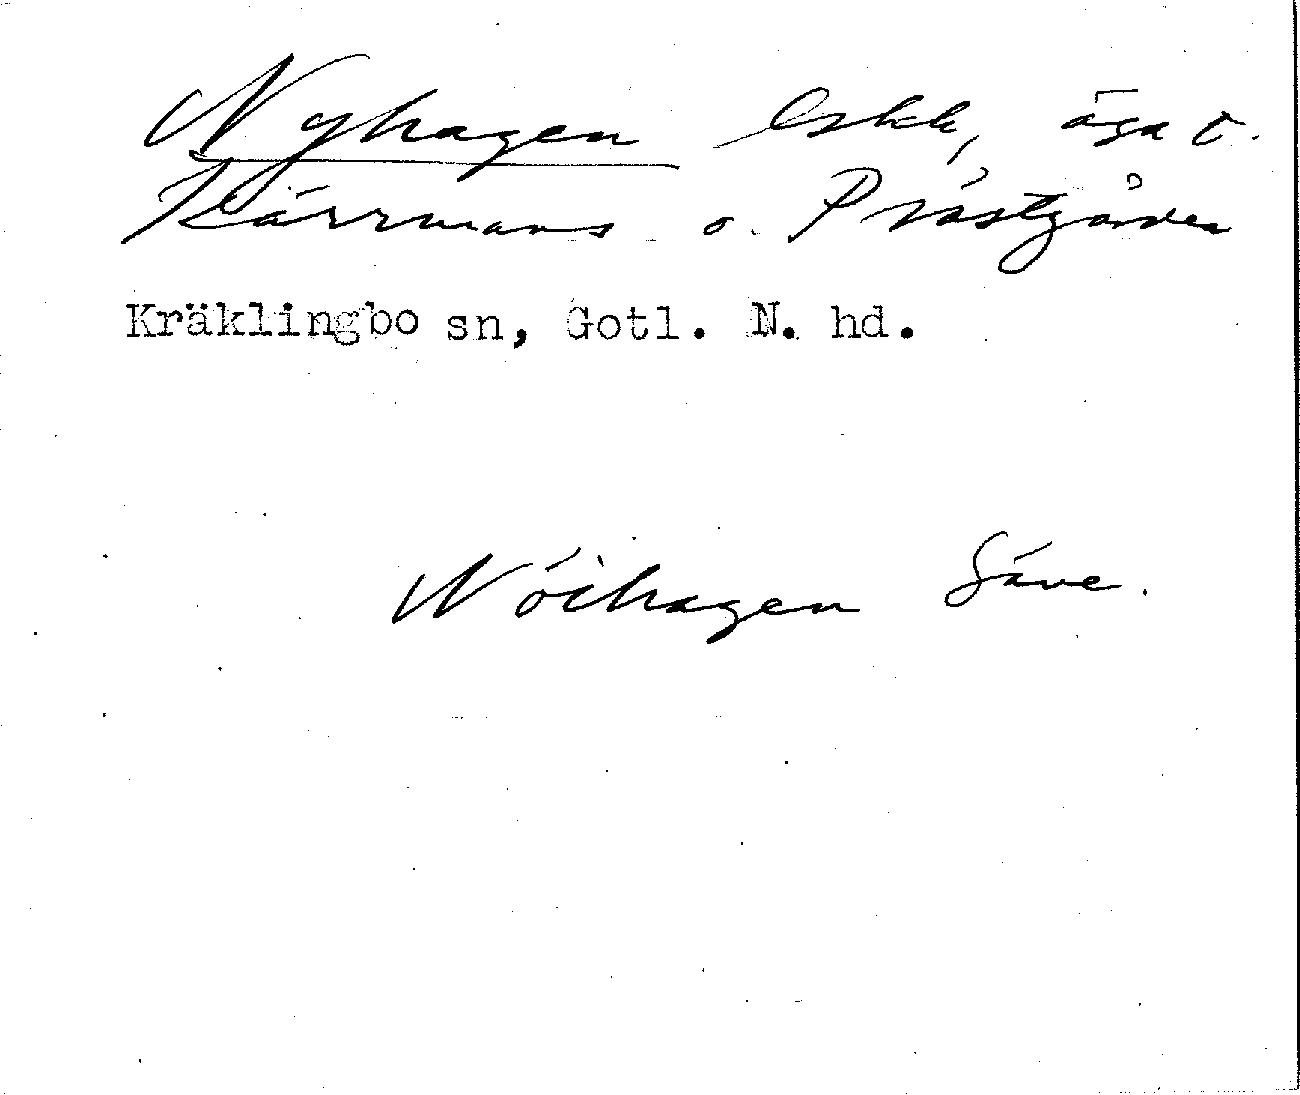 Nyhagen lskh, äga t.
Kärrmans o. Prästgården
Kräklingbo sn, Gotl. N. hd.
Nöihagen Säve.